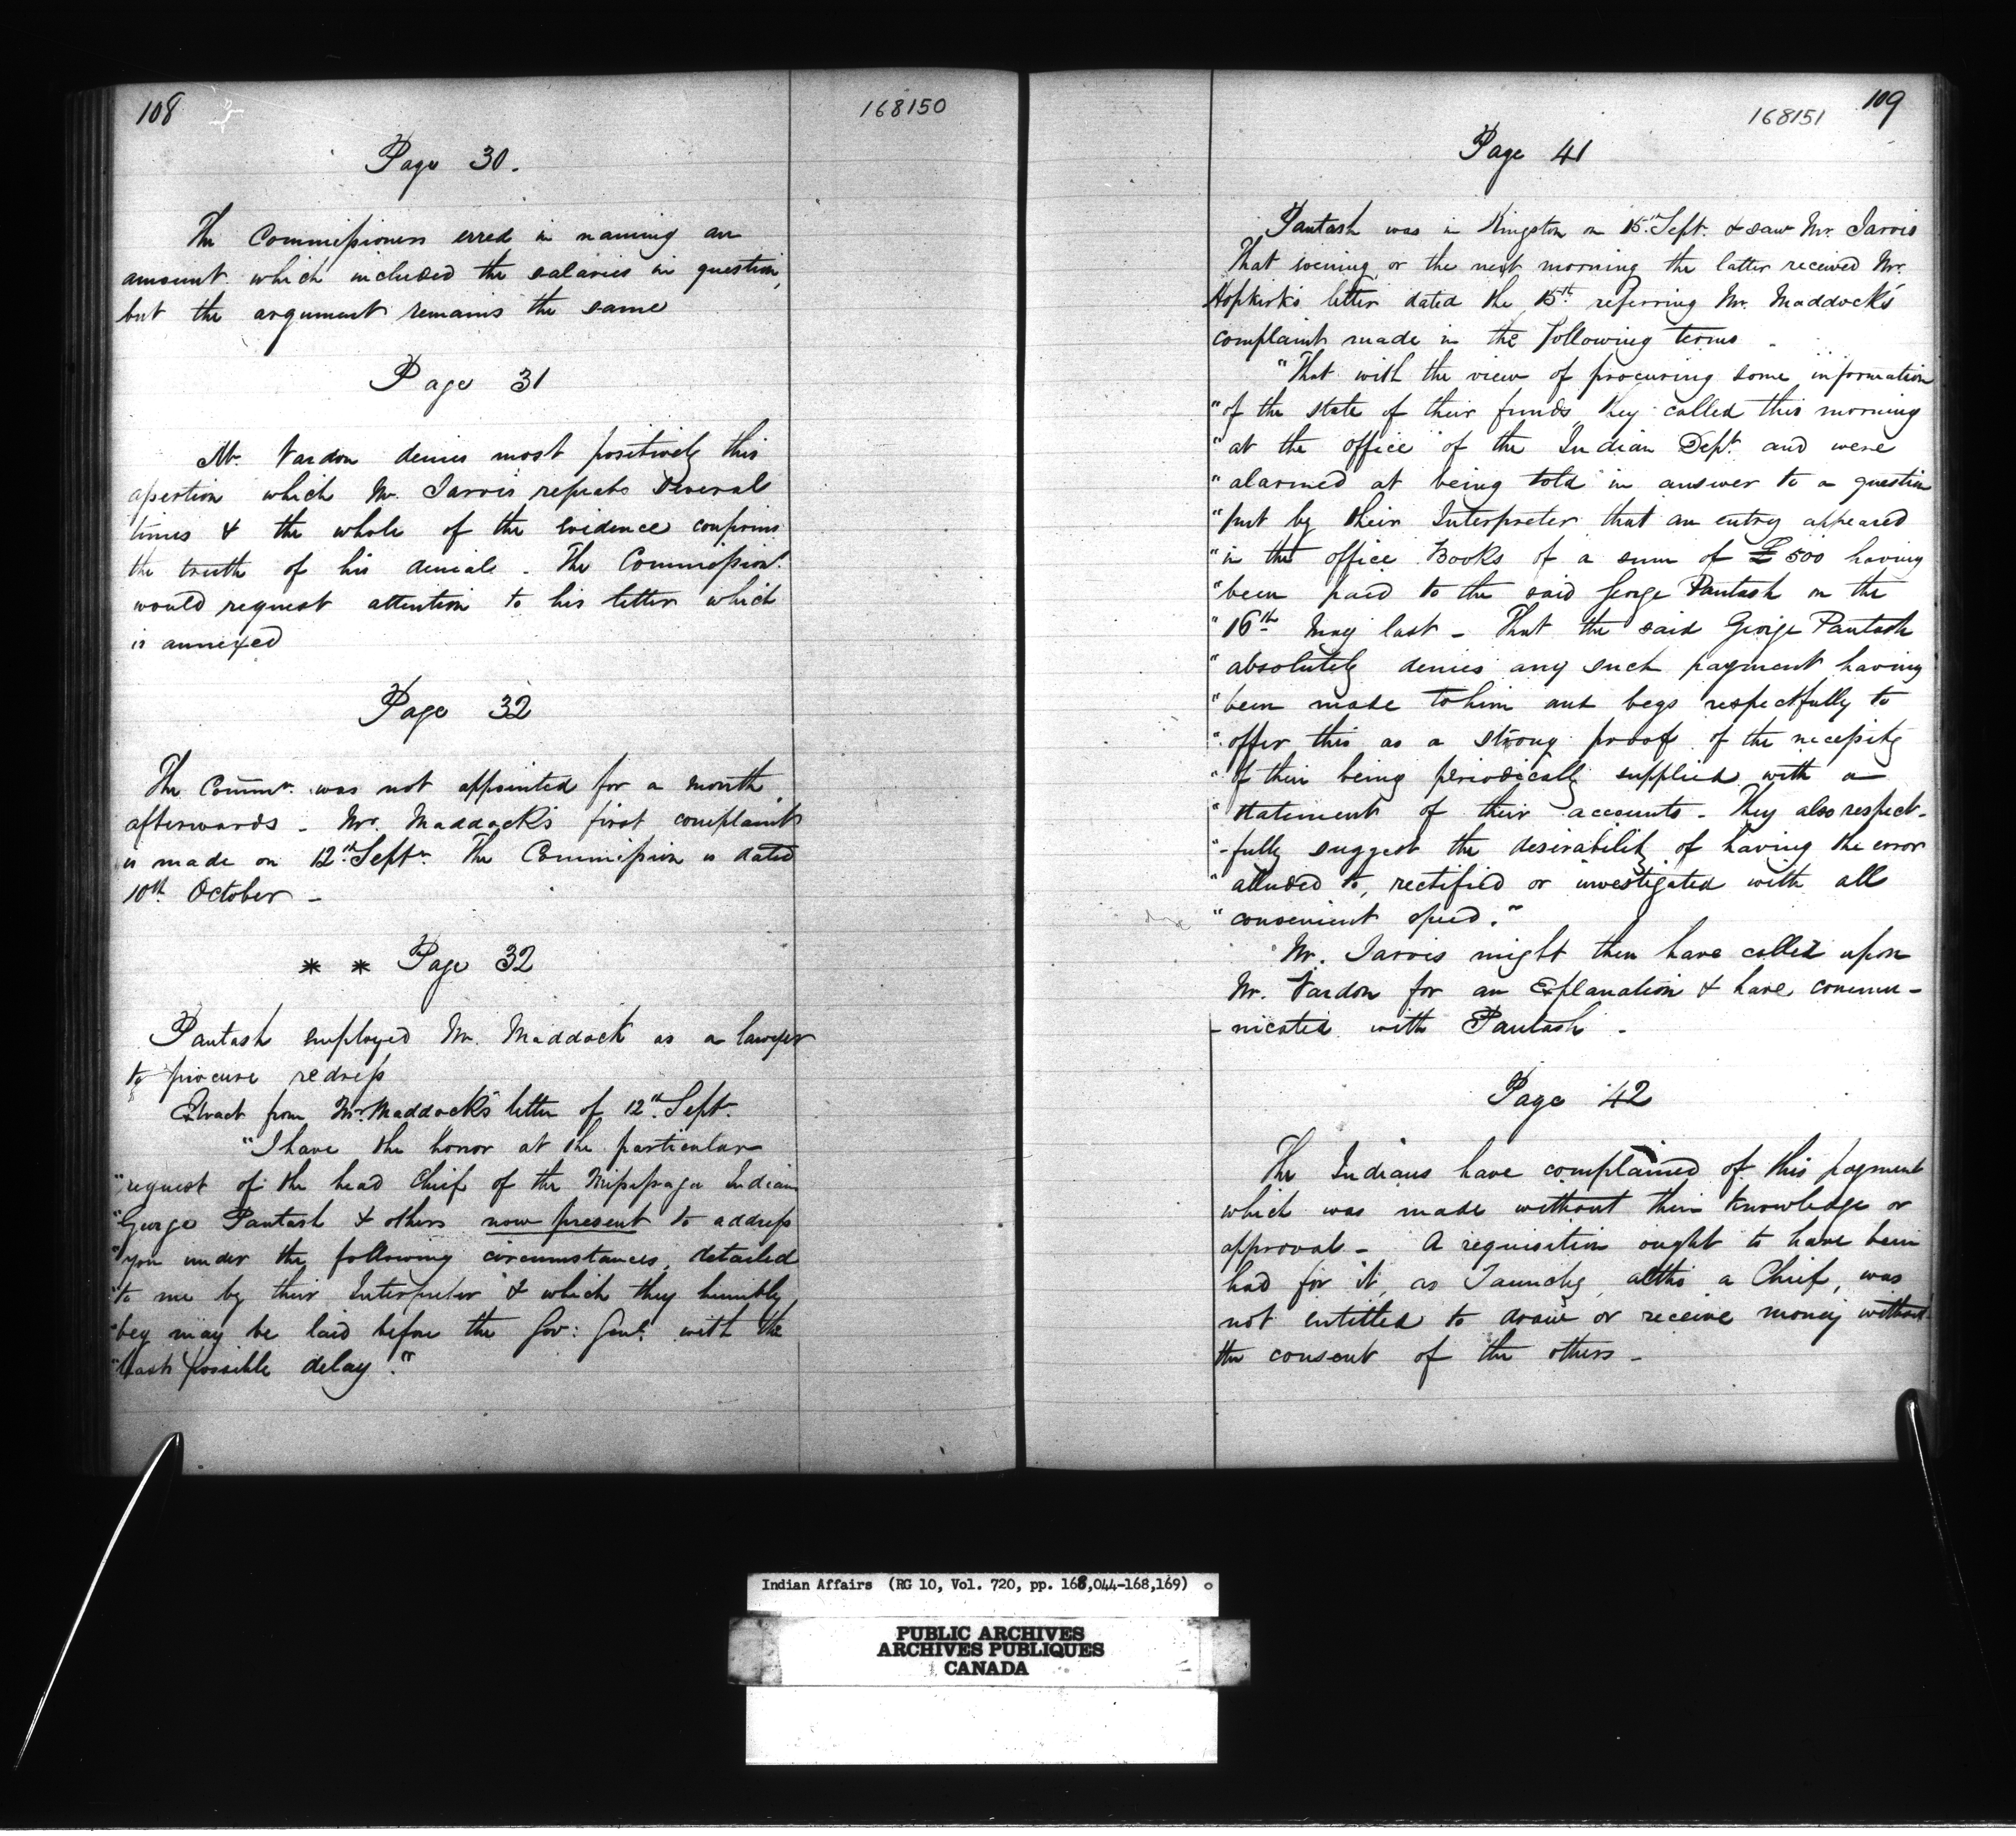 108
168150
Page 30.
The Commissioners erred in naming an
amount which included the salaries in question,
but the argument remains the same
Page 31
Mr. Vardon denies most positively this
assertion which Mr. Jarvis repeats several
times & the whole of the evidence confirms
the truth of his denials. The Commission.
would request attention to his letter which
is annexed
Page 32
The Commrs. was not appointed for a month
afterwards - Mr. Maddock's first complaint
is made on 12th Septr. The Commission is dated
10th October -
* * Page 32
Pautash employed Mr. Maddock as a lawyer
to procure redress
Extract from Mr. Maddock's letter of 12th Sept.
"I have the honor at the particular
"request of the head Chief of the Mississaga Indians
"George Pautash & others now present to address
"you under the following circumstances, detailed
"to me by their Interpreter & which they humbly
"beg may be laid before the Gov: Genl. with the
"least possible delay."
109
168151
Page 41
Pautash was in Kingston on 15th Sept. & saw Mr. Jarvis
That evening or the next morning the latter received Mr.
Hopkirk's letter dated the 15th referring Mr. Maddock's
complaint made in the following terms -
"That with the view of procuring some information
"of the state of their funds they called this morning
"at the office of the Indian Dept. and were
"alarmed at being told in answer to a question
"put by their Interpreter that an entry appeared
"in the office Books of a sum of £500 having
"been paid to the said George Pautash on the
"16th May last - That the said George Pautash
"absolutely denies any such payment having
"been made to him and begs respectfully to
"offer this as a strong proof of the necessity
"of their being periodically supplied with a
"statement of their accounts - They also respect-
"-fully suggest the desirability of having the error
"alluded to, rectified or investigated with all
"convenient speed."
Mr. Jarvis might then have called upon
Mr. Vardon for an Explanation & have commu-
-nicated with Pautash -
Page 42
The Indians have complained of this payment
which was made without their knowledge or
approval - A requisition ought to have been
had for it, as Taunchy, altho a Chief, was
not entitled to draw or receive money without
the consent of the others -
Indian Affairs (RG 10, Vol. 720, pp. 168,044-168,169)
PUBLIC ARCHIVES
ARCHIVES PUBLIQUES
CANADA